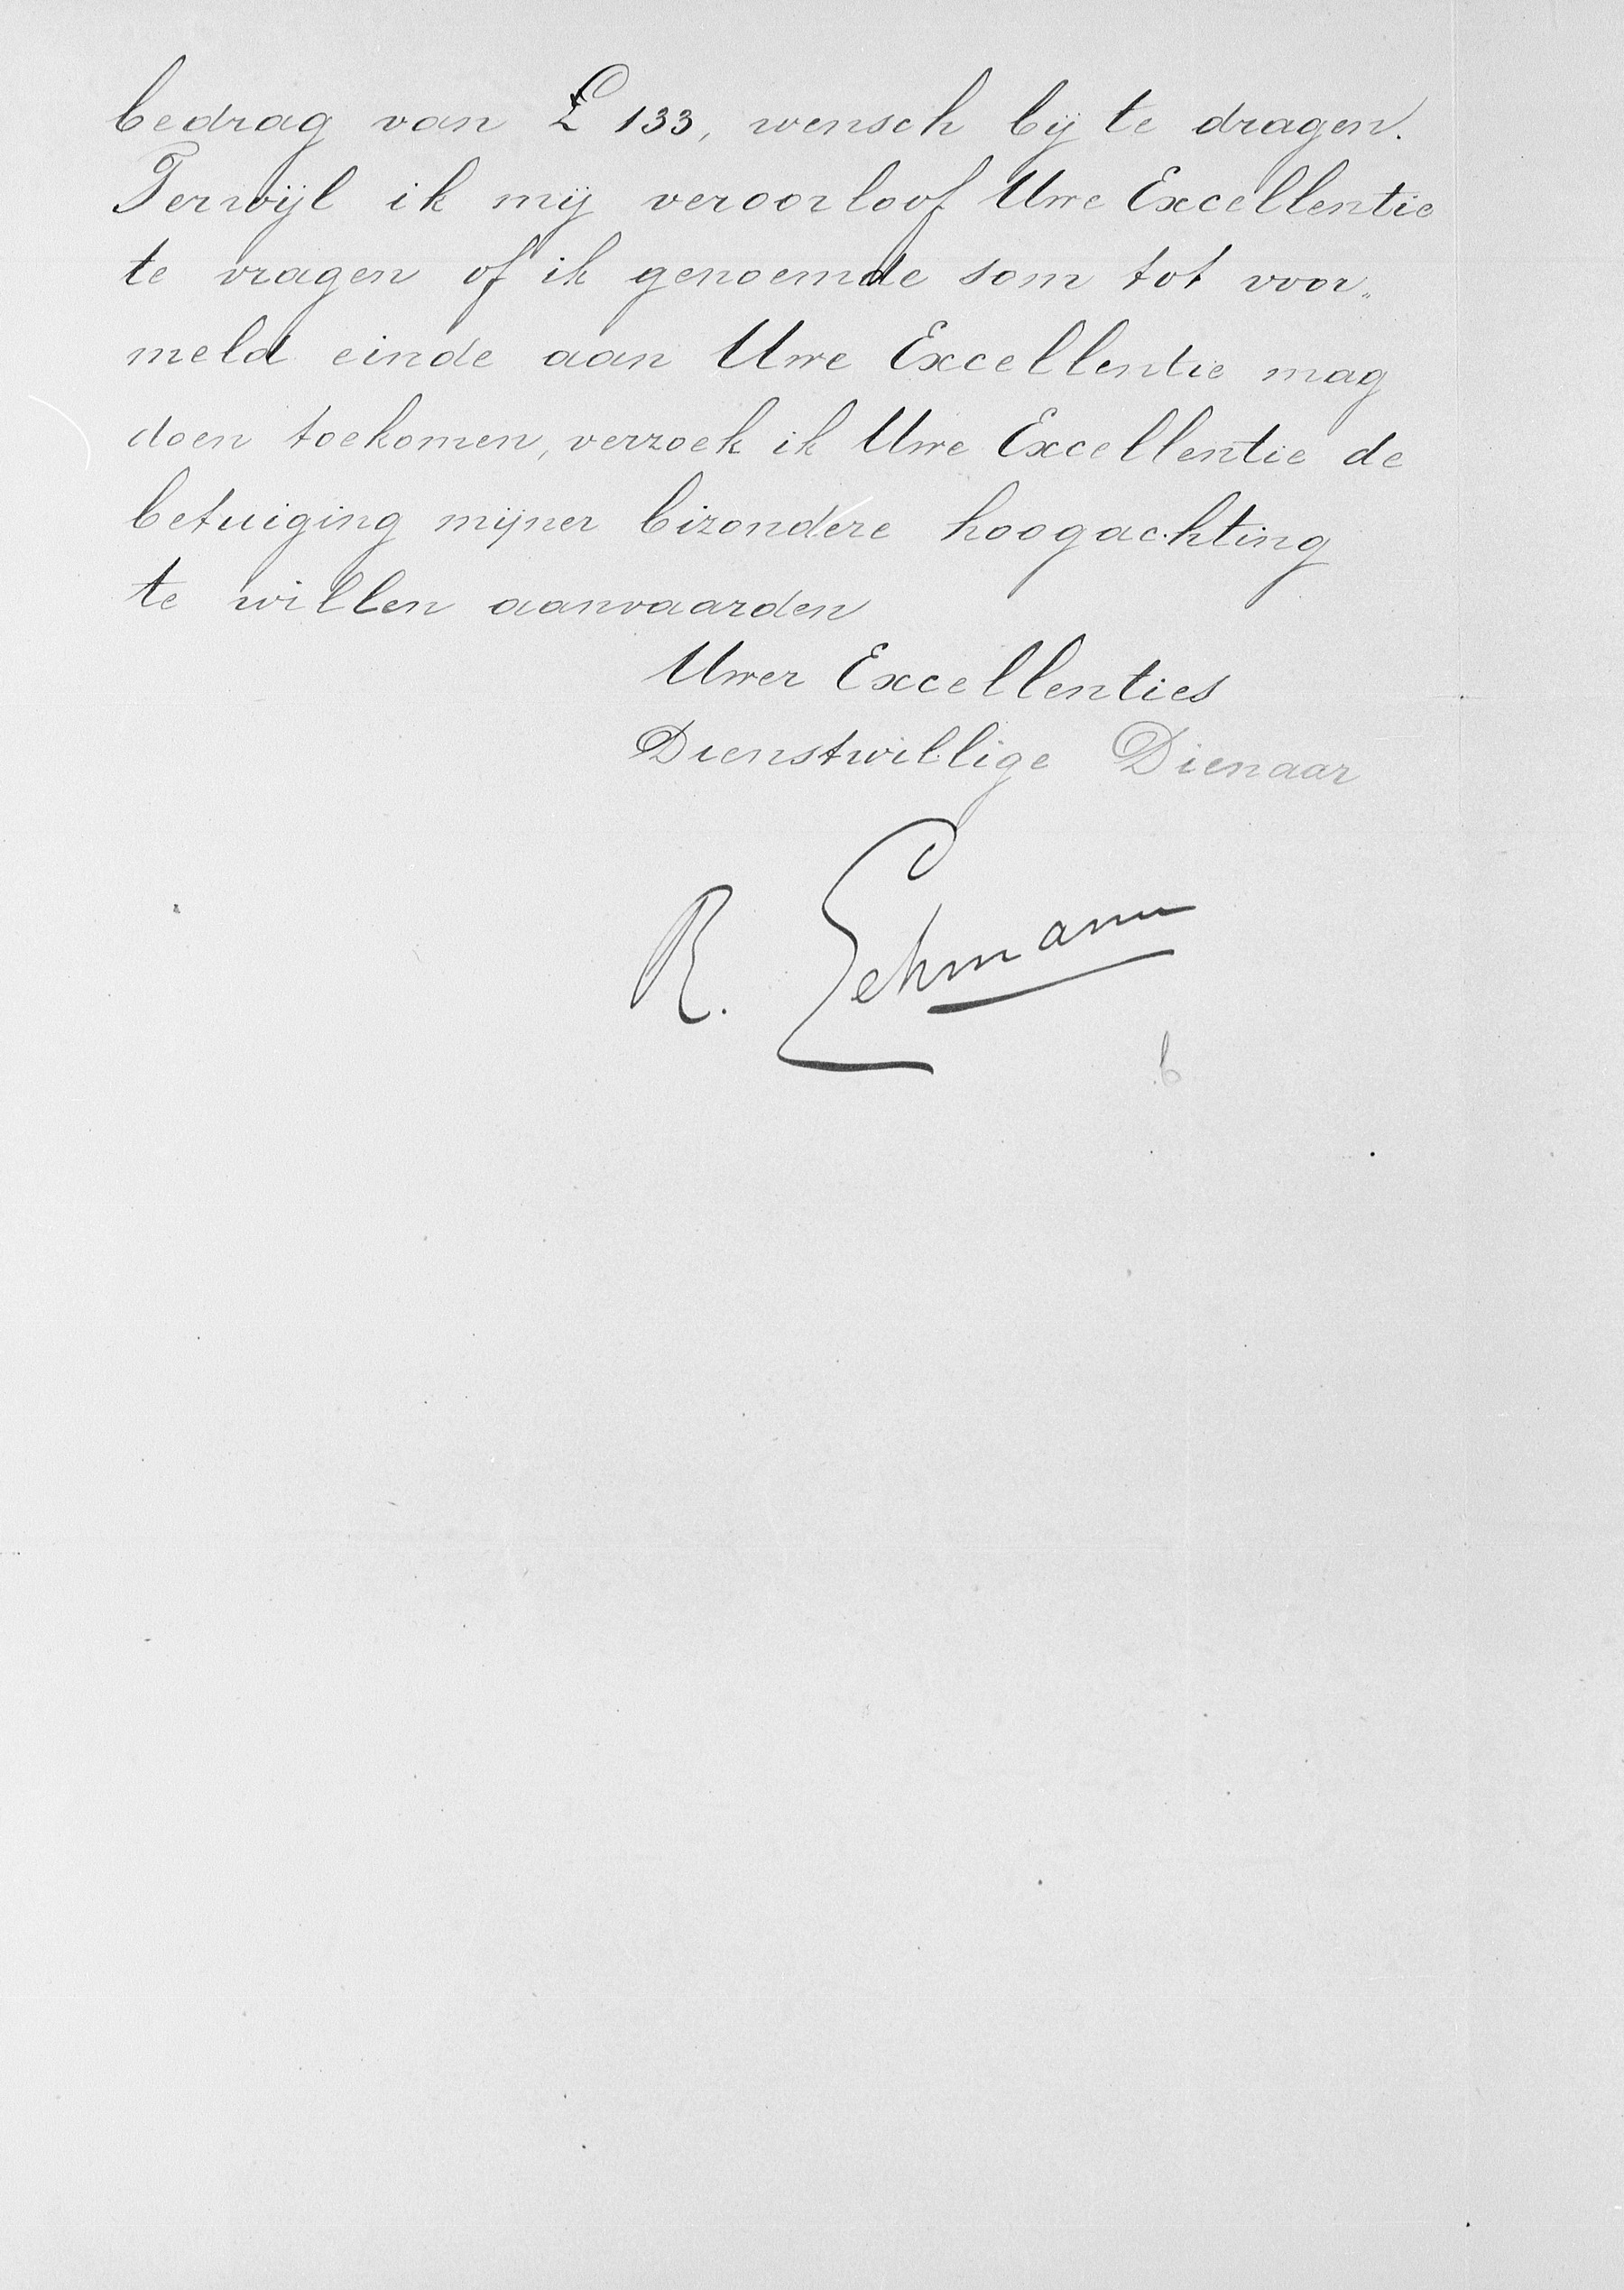 bedrag van £ 133, wensch bij te dragen.
Terwijl ik mij veroorloof Uwe Excellentie
te vragen of ik genoemde som tot voor„
meld einde aan Uwe Excellentie mag
doen toekomen, verzoek ik Uwe Excellentie de
betuiging mijner bizondere hoogachting
te willen aanvaarden
Uwer Excellenties
Dienstwillige Dienaar
R. Lehmann
6